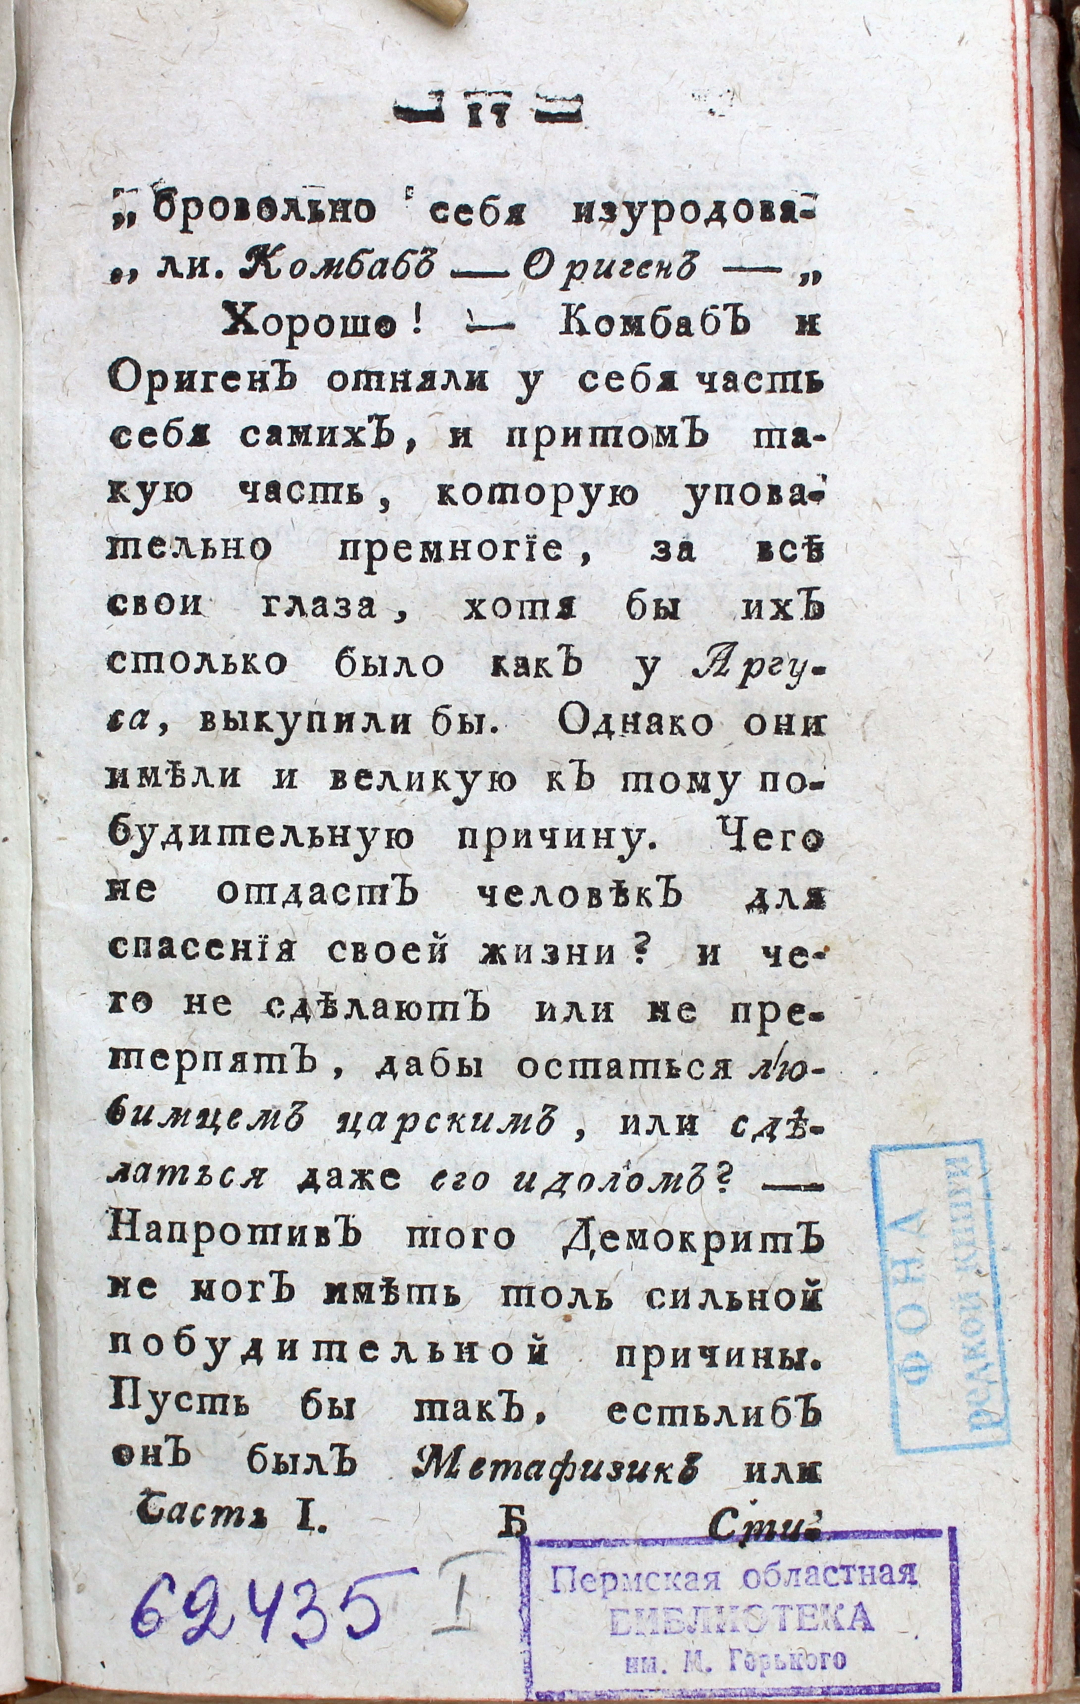 17
„бровольно себя изуродова-
„ли. Комбабъ — Оригенъ — „
Хорошо! — Комбабъ и
Оригенъ отняли у себя часть
себя самихъ, и притомъ та-
кую часть, которую упова-
тельно премногїе, за всѣ
свои глаза, хотя бы ихъ
столько было какъ у Аргу-
са, выкупили бы. Однако они
имѣли и великую къ тому по-
будительную причину. Чего
не отдастъ человѣкъ для
спасенїя своей жизни? и че-
го не сдѣлаютъ или не пре-
терпятъ, дабы остаться лю-
бимцемъ царскимъ, или сдѣ-
латься даже его идоломъ? —
Напротивъ того Демокритъ
не могъ имѣть толь сильной
побудительной причины.
Пусть бы такъ, естьлибъ
онъ былъ Метафизикъ или
Часть I. Б Сти-
62435 I
Пермская областная
БИБЛИОТЕКА
им. М. Горького
ФОНД
редкой книги